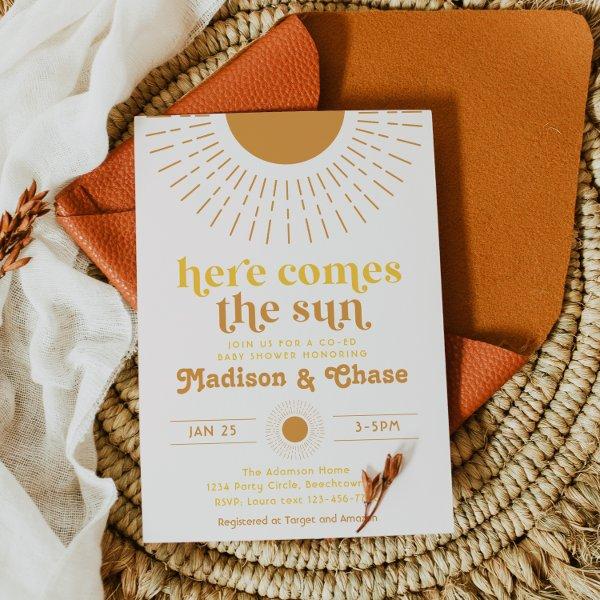 here comes
the sun
JOIN US FOR A CO-ED
BABY SHOWER HONORING
Madison & Chase
JAN 25
3-5PM
The Adamson Home
1234 Party Circle,
RSVP: Laura text
Registered at Target and Amazon